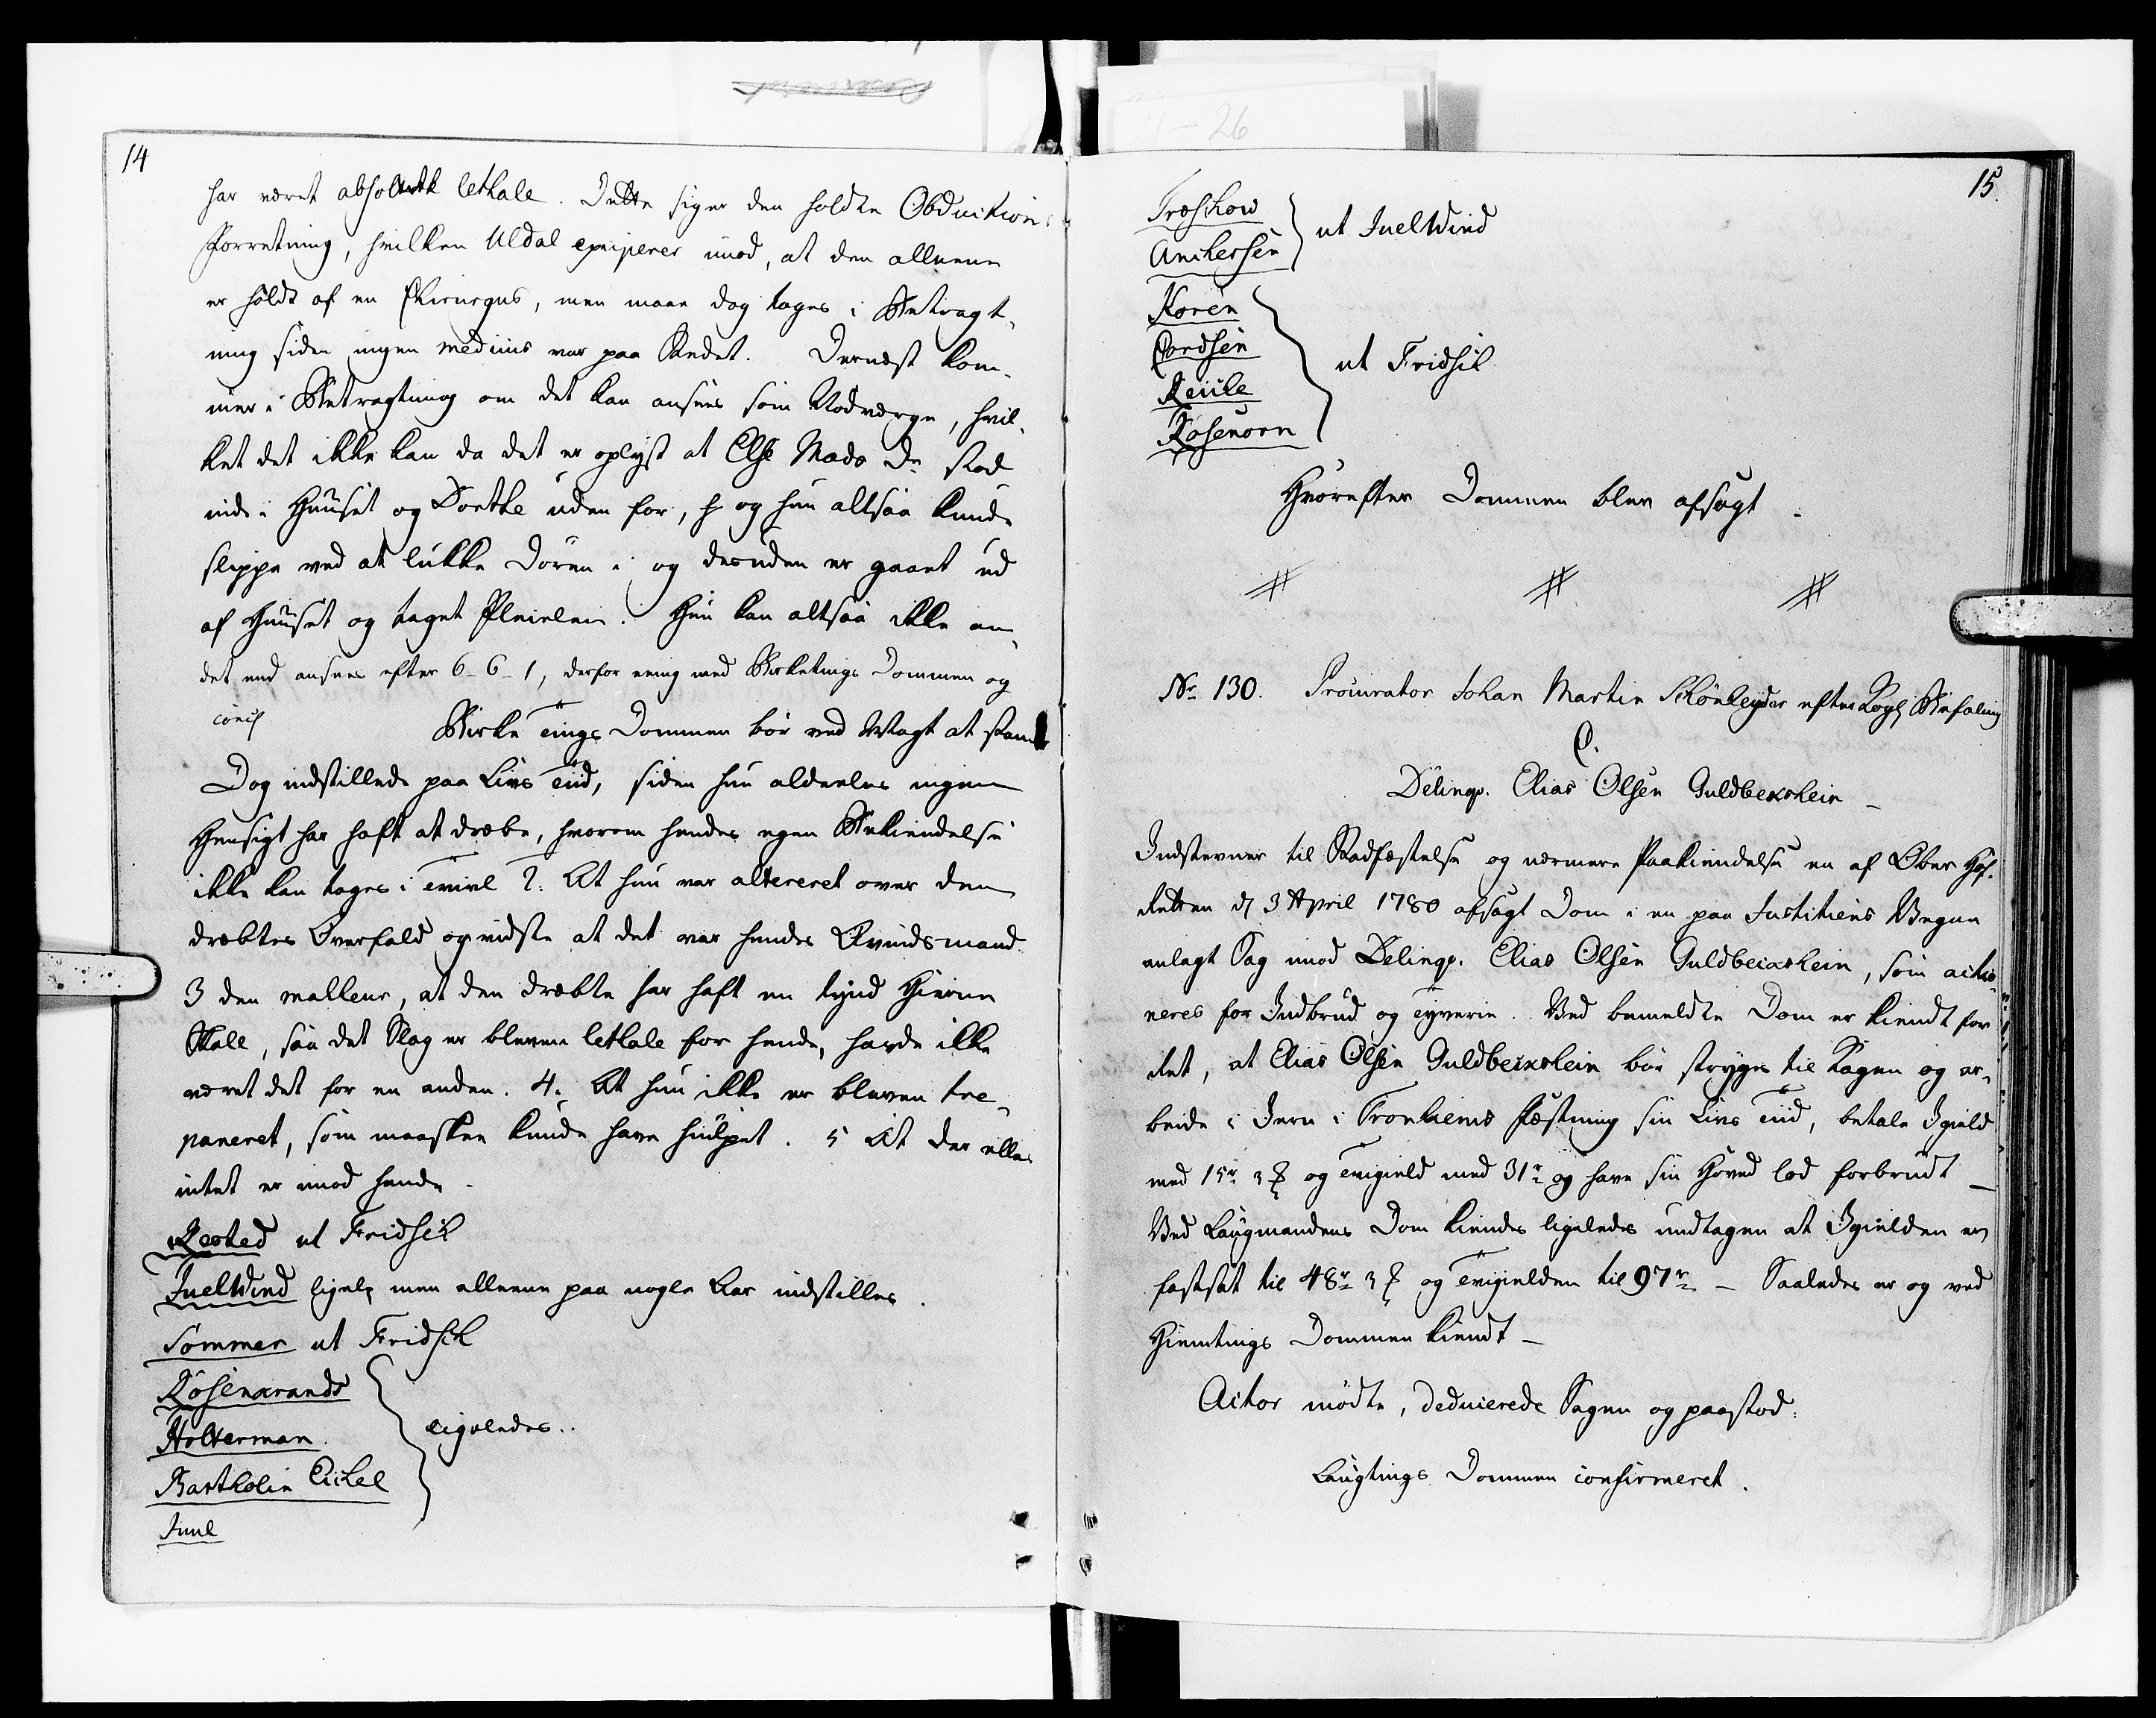 14
har været absolute lethale. Dette siger den holdte Obductions
Forretning, hvilken Uldal exciperer imod, at den alleene
er holdt af en Chirurgus, men maae dog tages i Betragt-
ning siden ingen medicus var paa Stedet. Dernæst kom-
mer i Betragtning om det kan ansees som Nødværge, hvil-
ket det ikke kan da det er oplyst at Else Mads Dr stod
inde i Huuset og Dorthe uden for, og hun altsaa kunde
slippe ved at lukke Døren i og desuden er gaaet ud
af Huuset og taget Pleielen. Hun kan altsaa ikke an-
det end ansees efter 6-6-1, derfor eenig med Birketings Dommen og
concl
Birketings Dommen bør ved Magt at stande
Dog indstilleds paa Livs Tiid, siden hun aldeeles ingen
Hensigt har haft at dræbe, hvorom hendes egen Bekiendelse
ikke kan tages i Tvivl 2. At hun var altereret over den
dræbtes Overfald og vidste at det var hendes Avindsmand.
3 den malleur, at den dræbte har haft en tynd Hierne
Skall, saa det Slag er bleven lethale for hende, havde ikke
været det for en anden. 4. At hun ikke er bleven tre-
paneret, som maaskee kunde have hiulpet. 5 At der ellers
intet er imod hende.
Rested ut Fridsch
Juel Wind ligel, men alleene paa nogle Aar indstilles.
Sommer ut Fridsch
Rosencrands
Holterman
Bartholin Eichel
Juul
ligeledes.
15.
Treschow
Anchersen
ut Juel Wind
Koren
Cordsen
Reiche
Rosenørn
ut Fridsch
Hvorefter Dommen blev afsagt.
No 130. Procurator Johan Martin Schønheyder efter Kogl Befaling
C.
Delinqv. Elias Olsen Guldbechshein
Indstevner til Stadfæstelse og nærmere Paakiendelse en af Over Hof-
Retten d 3 April 1780 afsagt Dom i en paa Justitiens Vegne
anlagt Sag imod Delinqv. Elias Olsen Guldbechshein, som actio-
neres for Indbrud og Tyverie. Ved bemeldte Dom er kiendt for
Ret, at Elias Olsen Guldbechshein bør stryges til Kagen og ar-
beide i Jern i Tronhiems Fæstning sin Livs Tiid, betale Igield
med 15r 3 ß og Tvigield med 31r og have sin Hoved lod forbrudt
Ved Laugmandens Dom kiendes ligeledes undtagen at Igielden er
fastsat til 48r 3 ß og Tvigielden til 97r - Saaledes er og ved
Hiemtings Dommen kiendt
Actor mødte, deducerede Sagen og paastod:
Laugtings Dommen confirmeret.